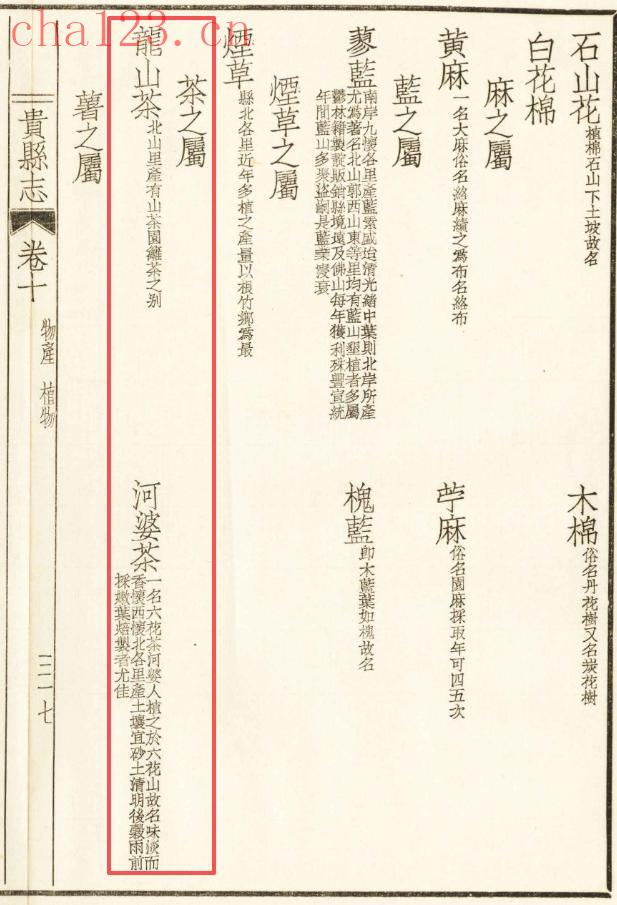 cha123.cn
石山花 植棉石山下土坡故名
木棉 俗名丹花樹又名炭花樹
白花棉
麻之屬
黄麻 一名大麻俗名絡麻績之爲布名絡布
苧麻 俗名園麻採取年可四五次
藍之屬
蓼藍 南岸九懷各里產藍素盛迨清光緒中葉則北岸所產
尤爲著名北山郭西山東等里均有藍山墾植者多屬
鬱林籍製靛販銷縣境遠及佛山每年獲利殊豐宣統
年間藍山多聚盜嗣是藍業寖衰
槐藍 卽木藍葉如槐故名
煙草之屬
煙草 縣北各里近年多植之產量以根竹鄉爲最
茶之屬
龍山茶 北山里產有山茶園籬茶之别
河婆茶 一名六花茶河婆人植之於六花山故名味淡而
香懷西懷北各里產土壤宜砂土清明後穀雨前
採嫩葉焙製者尤佳
薯之屬
貴縣志
卷十
物產 植物
三一七